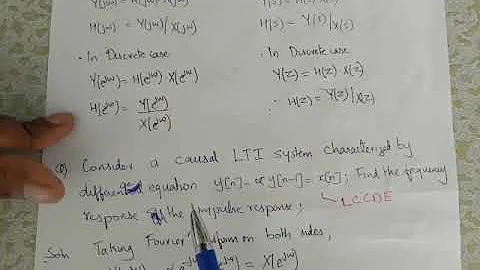 Y(jω) = H(jω) X(jω)
H(jω) = Y(jω)/X(jω)
H(s) = Y(s)/X(s)
· In Discrete case
Y(e^jω) = H(e^jω) X(e^jω)
H(e^jω) = Y(e^jω)/X(e^jω)
· In Discrete case
Y(z) = H(z) X(z)
∴ H(z) = Y(z)/X(z)
Q) Consider a causal LTI system characterized by
equation y[n] - αy[n-1] = x[n]; Find the frequency
response the impulse response;
LCCDE
Soln Taking Fourier on both sides,
= X(e^jω)